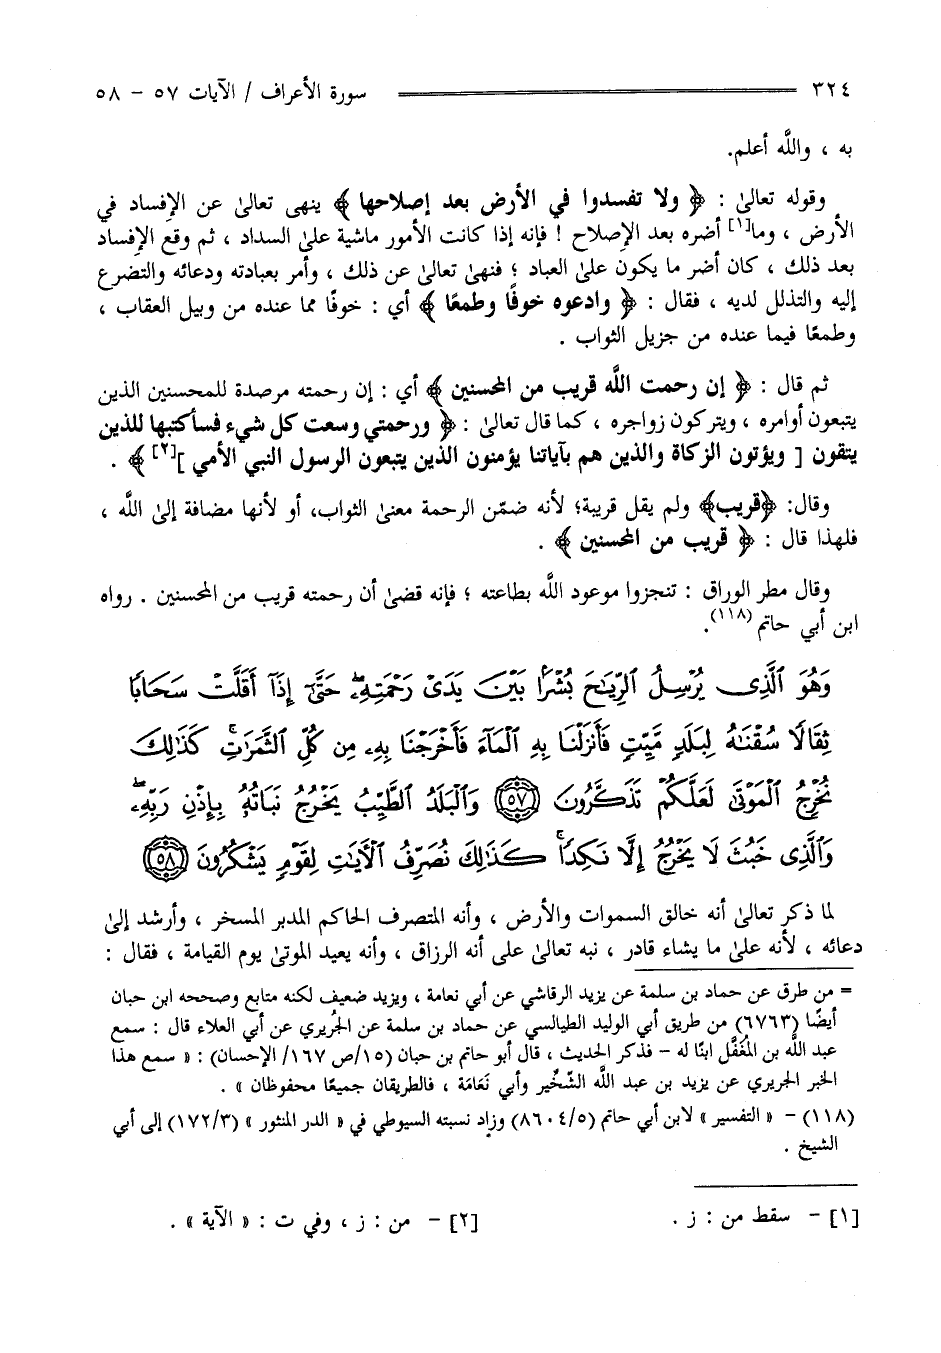 ٣٢٤ سورة الأعراف / الآيات ٥٧ - ٥٨
به ، والله أعلم.
وقوله تعالى : ﴿ ولا تفسدوا في الأرض بعد إصلاحها ﴾ ينهى تعالى عن الإفساد في
الأرض ، وما[١] أضره بعد الإصلاح ! فإنه إذا كانت الأمور ماشية على السداد ، ثم وقع الإفساد
بعد ذلك ، كان أضر ما يكون على العباد ؛ فنهى تعالى عن ذلك ، وأمر بعبادته ودعائه والتضرع
إليه والتذلل لديه ، فقال : ﴿ وادعوه خوفًا وطمعًا ﴾ أي : خوفًا مما عنده من وبيل العقاب ،
وطمعًا فيما عنده من جزيل الثواب .
ثم قال : ﴿ إن رحمت الله قريب من المحسنين ﴾ أي : إن رحمته مرصدة للمحسنين الذين
يتبعون أوامره ، ويتركون زواجره ، كما قال تعالى : ﴿ ورحمتي وسعت كل شيء فسأكتبها للذين
يتقون [ ويؤتون الزكاة والذين هم بآياتنا يؤمنون الذين يتبعون الرسول النبي الأمي ][٢] ﴾ .
وقال: ﴿قريب﴾ ولم يقل قريبة؛ لأنه ضمّن الرحمة معنى الثواب، أو لأنها مضافة إلى الله ،
فلهذا قال : ﴿ قريب من المحسنين ﴾ .
وقال مطر الوراق : تنجزوا موعود الله بطاعته ؛ فإنه قضى أن رحمته قريب من المحسنين . رواه
ابن أبي حاتم (١١٨).
وَهُوَ ٱلَّذِى يُرْسِلُ ٱلرِّيَـٰحَ بُشْرًۢا بَيْنَ يَدَىْ رَحْمَتِهِۦ ۖ حَتَّىٰٓ إِذَآ أَقَلَّتْ سَحَابًا
ثِقَالًا سُقْنَـٰهُ لِبَلَدٍ مَّيِّتٍ فَأَنزَلْنَا بِهِ ٱلْمَآءَ فَأَخْرَجْنَا بِهِۦ مِن كُلِّ ٱلثَّمَرَٰتِ ۚ كَذَٰلِكَ
نُخْرِجُ ٱلْمَوْتَىٰ لَعَلَّكُمْ تَذَكَّرُونَ ٥٧ وَٱلْبَلَدُ ٱلطَّيِّبُ يَخْرُجُ نَبَاتُهُۥ بِإِذْنِ رَبِّهِۦ ۖ
وَٱلَّذِى خَبُثَ لَا يَخْرُجُ إِلَّا نَكِدًا ۚ كَذَٰلِكَ نُصَرِّفُ ٱلْـَٔايَـٰتِ لِقَوْمٍ يَشْكُرُونَ ٥٨
لما ذكر تعالى أنه خالق السموات والأرض ، وأنه المتصرف الحاكم المدبر المسخر ، وأرشد إلى
دعائه ، لأنه على ما يشاء قادر ، نبه تعالى على أنه الرزاق ، وأنه يعيد الموتى يوم القيامة ، فقال :
= من طرق عن حماد بن سلمة عن يزيد الرقاشي عن أبي نعامة ، ويزيد ضعيف لكنه متابع وصححه ابن حبان
أيضًا (٦٧٦٣) من طريق أبي الوليد الطيالسي عن حماد بن سلمة عن الجُريري عن أبي العلاء قال : سمع
عبد الله بن المُغَفَّل ابنًا له - فذكر الحديث ، قال أبو حاتم بن حبان (١٥/ص ١٦٧/ الإحسان) : « سمع هذا
الخبر الجريري عن يزيد بن عبد الله الشِّخِّير وأبي نَعَامَة ، فالطريقان جميعًا محفوظان » .
(١١٨) - « التفسير » لابن أبي حاتم (٨٦٠٤/٥) وزاد نسبته السيوطي في « الدر المنثور » (١٧٢/٣) إلى أبي
الشيخ .
[١] - سقط من : ز . [٢] - من : ز ، وفي ت : « الآية » .